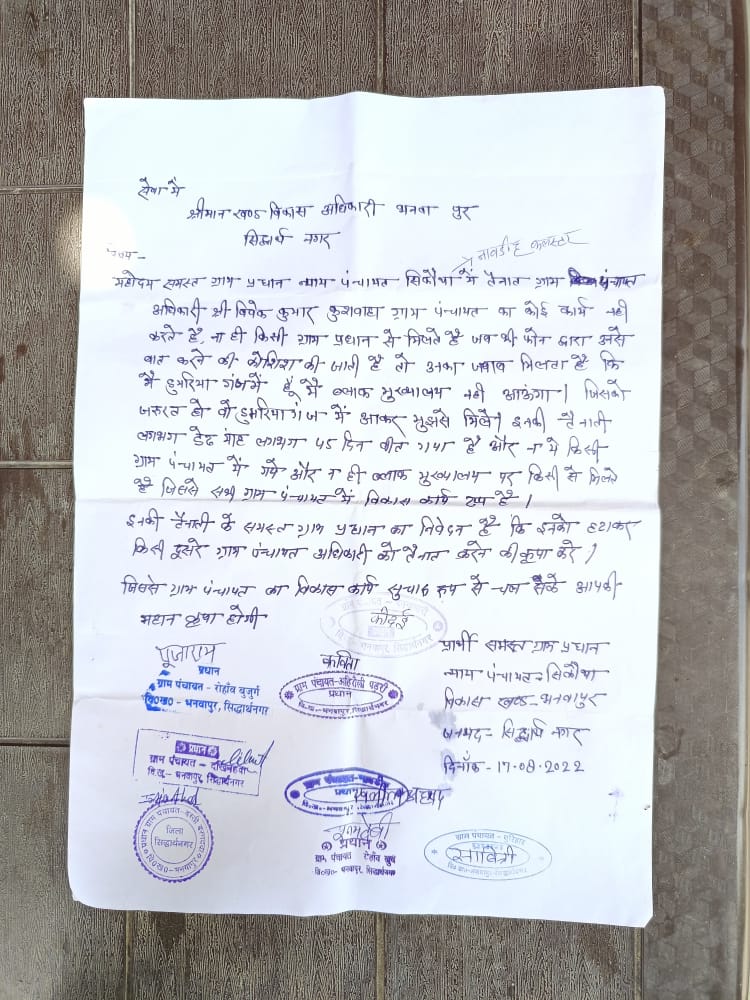 सेवा में
श्रीमान खण्ड विकास अधिकारी भनवा पुर
सिद्धार्थ नगर
महोदय समस्त ग्राम प्रधान न्याय पंचायत सिकौथा में तैनात ग्राम पंचायत
अधिकारी श्री विवेक कुमार कुशवाहा ग्राम पंचायत का कोई कार्य नही
करते है, ना ही किसी ग्राम प्रधान से मिलते है जब भी फोन द्वारा उनसे
बात करने की कोशिश की जाती है तो उनका जवाब मिलता है कि
मै डुमरिया गंज में हूँ मै ब्लाक मुख्यालय नही आऊंगा। जिसको
जरुरत हो वो डुमरिया गंज में आकर मुझसे मिले। इनकी तैनाती
लगभग डेढ़ माह लगभग 45 दिन बीत गया है और न ये किसी
ग्राम पंचायत में गये और न ही ब्लाक मुख्यालय पर किसी से मिलते
है जिससे सभी ग्राम पंचायत में विकास कार्य ठप है।
इनकी तैनाती के समस्त ग्राम प्रधान का निवेदन है कि इनको हटाकर
किसी दूसरे ग्राम पंचायत अधिकारी को तैनात करने की कृपा करे।
जिससे ग्राम पंचायत का विकास कार्य सुचारु रुप से चल सके आपकी
महान कृपा होगी
प्रार्थी समस्त ग्राम प्रधान
न्याय पंचायत- सिकौथा
विकास खण्ड- भनवापुर
जनपद- सिद्धार्थ नगर
दिनाँक - 17-08-2022
पूजाराम
प्रधान
ग्राम पंचायत - रोहाँव बुजुर्ग
वि०ख०- भनवापुर, सिद्धार्थनगर
कविता
ग्राम पंचायत-अहिरौली पड़री
प्रधान
वि.ख०- भनवापुर, सिद्धार्थनगर
प्रधान
ग्राम पंचायत -
वि.ख०- भनवापुर, सिद्धार्थनगर
जिला
सिद्धार्थनगर
प्रधान
ग्राम पंचायत रोहाँव खुर्द
वि०ख०- भनवापुर, सिद्धार्थनगर
सावित्री